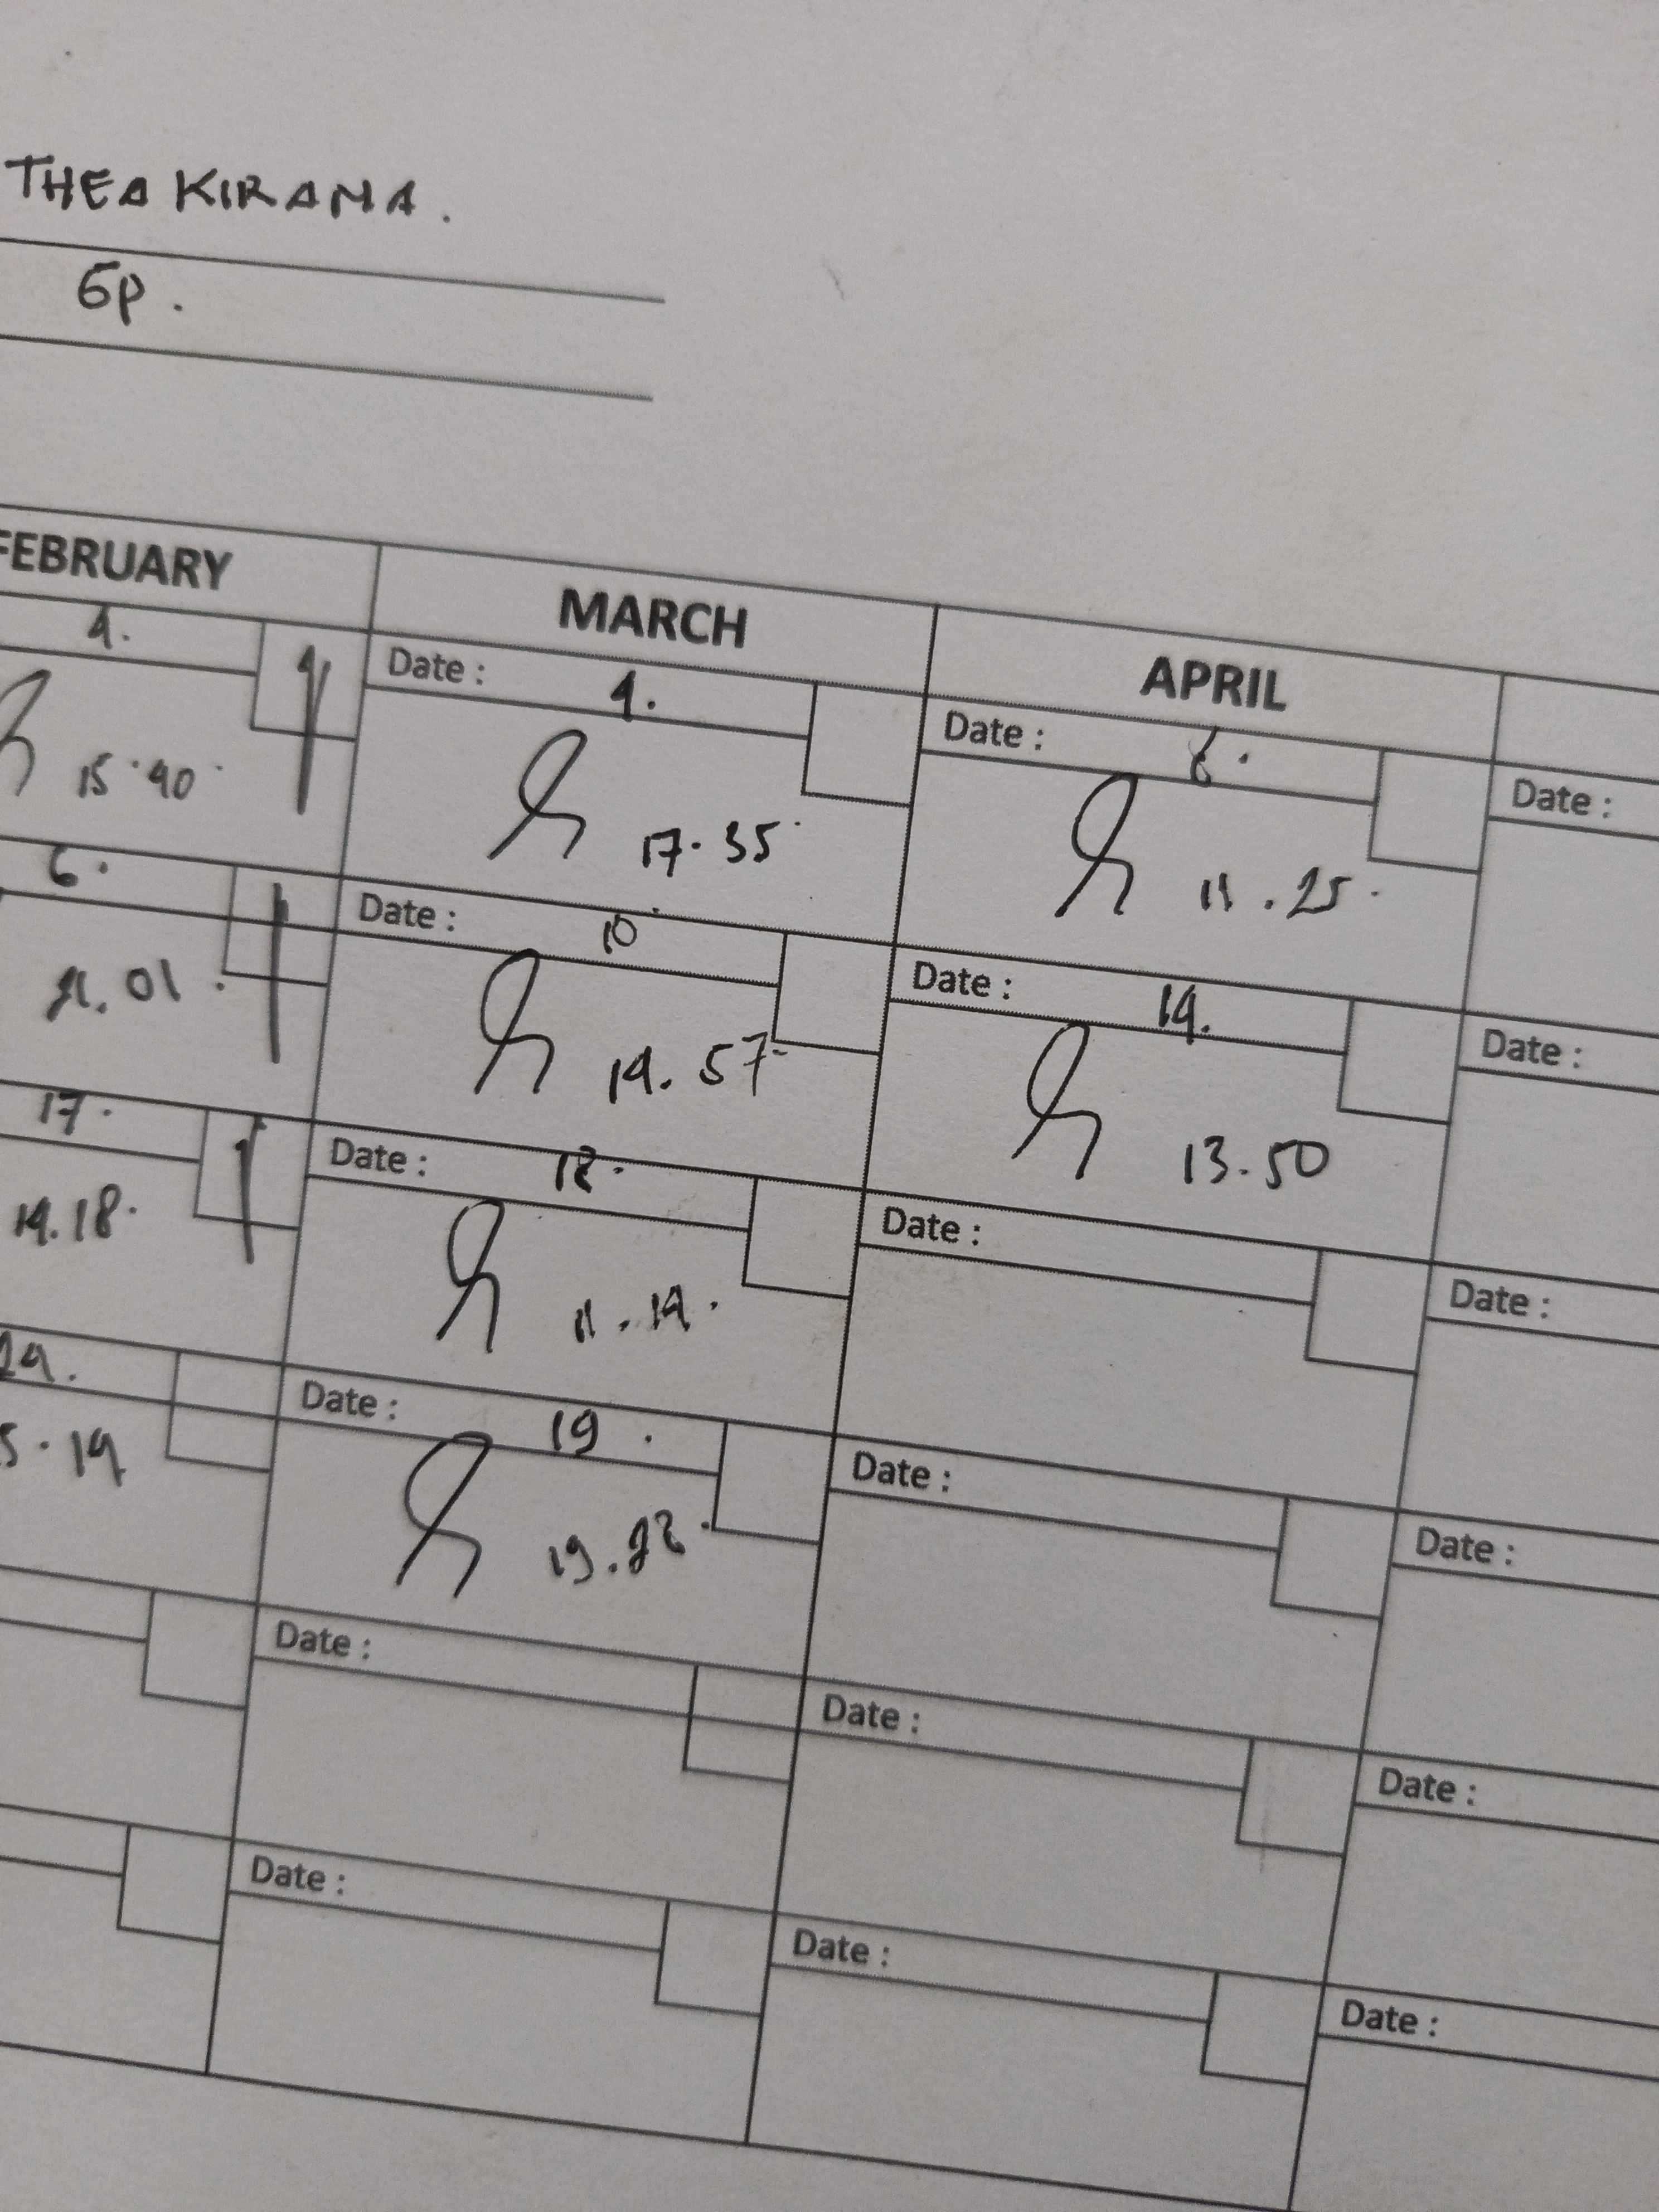 THEA KIRANA.
6P.
FEBRUARY MARCH APRIL
4. Date : 4. Date : 8. Date :
15.40. 17.35 11.25.
6. Date : 10 Date : 14. Date :
21.01. 14.57
13.50
17. Date : 12. Date : Date :
14.18. 11.14.
24. Date : 19. Date : Date :
5.14 19.22.
Date : Date : Date :
Date : Date : Date :